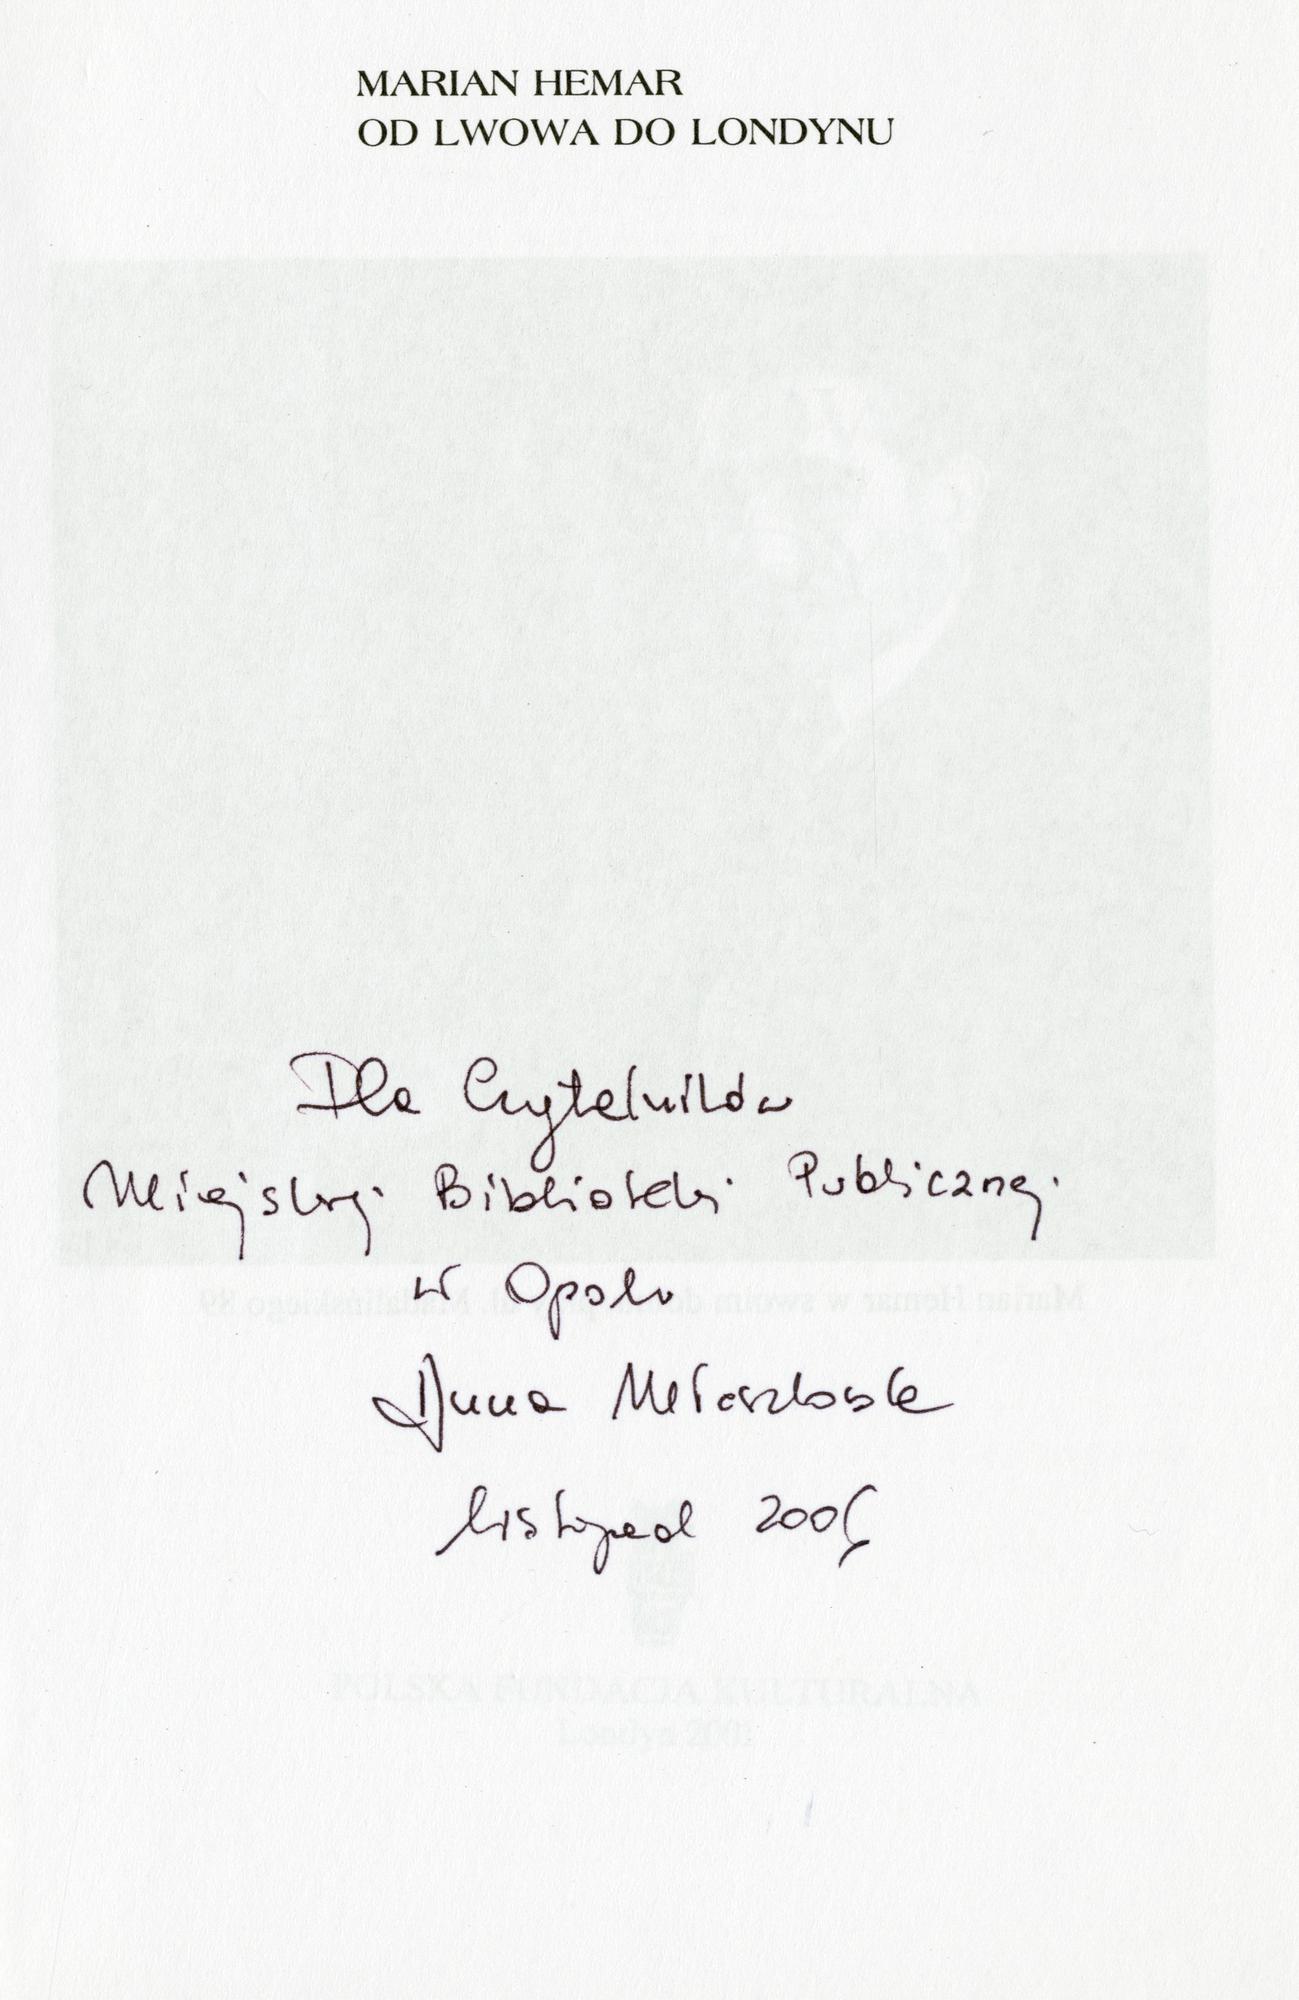 MARIAN HEMAR
OD LWOWA DO LONDYNU
Dla Czytelników
Miejskiej Biblioteki Publicznej
w Opolu
Anna Mieszkowska
listopad 2005
Marian Hemar w swoim domu przy ul. Madalińskiego 89
POLSKA FUNDACJA KULTURALNA
Londyn 2001